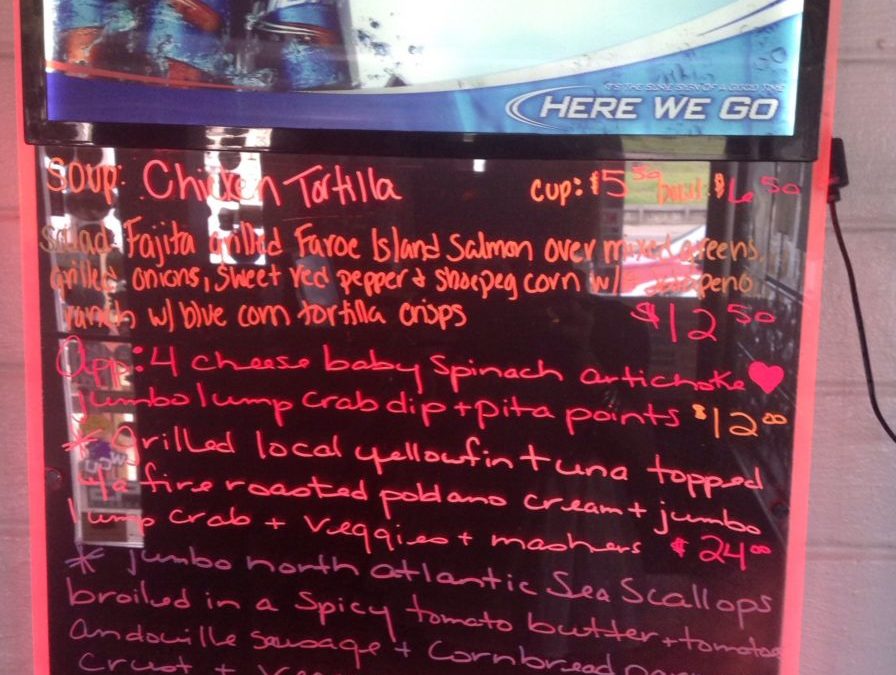 IT'S THE SURE SIGN OF A GOOD TIME
HERE WE GO
Soup: Chicken Tortilla cup: $5 50 bowl: $6 50
Salad: Fajita grilled Faroe Island Salmon over mixed greens,
grilled onions, sweet red pepper & shoepeg corn w/ jalapeno
ranch w/ blue corn tortilla crisps $12 50
App: 4 cheese baby Spinach artichoke
jumbo lump crab dip + pita points $12 00
* Grilled local yellowfin tuna topped
w/a fire roasted poblano cream + jumbo
lump crab + veggies + mashers $24 00
* jumbo north atlantic Sea Scallops
broiled in a Spicy tomato butter + tomatoe
andouille sausage + Cornbread
Crust +